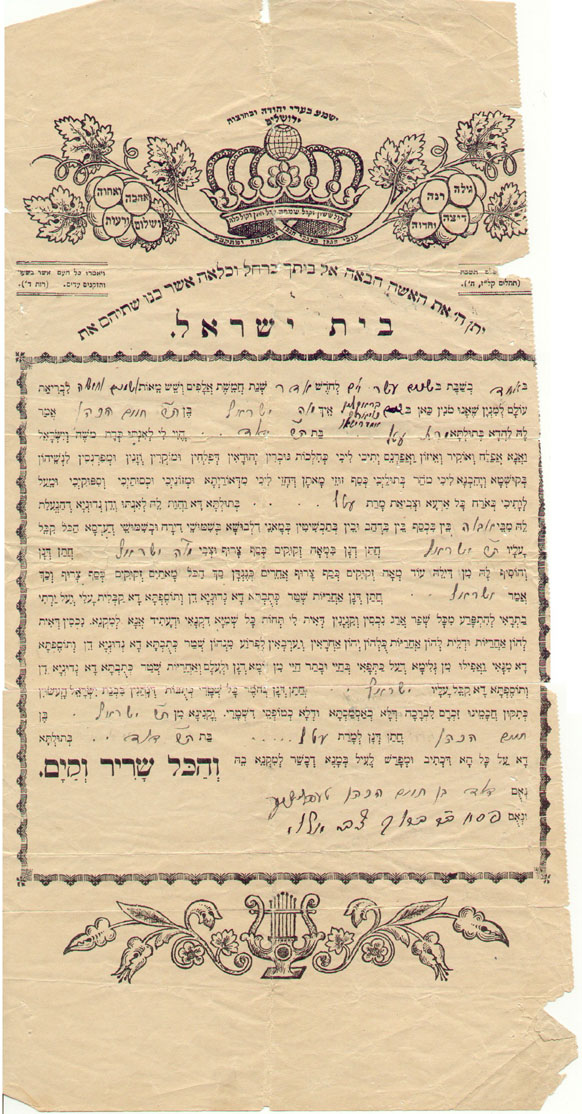 ישמע בערי יהודה ובחוצות
ירושלים
אהבה ואחוה
ושלום ורעות
גילה רנה
דיצה וחדוה
קול ששון וקול שמחה קול חתן וקול כלה
ויאמרו כל העם אשר בשער
והזקנים עדים. (רות ד').
(תהלים קל"ז, ה').
יתן ה' את האשה הבאה אל ביתך כרחל וכלאה אשר בנו שתיהם את
בית ישראל.
באחד בשבת בשנים עשר יום לחודש אדר שנת חמשת אלפים ושש מאות לבריאת
עולם למנין שאנו מנין כאן איך ישראל בן חיים הכהן אמר
לה להדא בתולתא בת הוי לי לאנתו כדת משה וישראל
ואנא אפלח ואוקיר ואיזון ואפרנס יתיכי ליכי כהלכות גוברין יהודאין דפלחין ומוקרין וזנין ומפרנסין לנשיהון
בקושטא ויהבנא ליכי מהר בתוליכי כסף זוזי מאתן דחזי ליכי מדאורייתא ומזוניכי וכסותיכי וסיפוקיכי ומעל
לותיכי כאורח כל ארעא וצביאת מרת בתולתא דא והות לה לאנתו ודן נדוניא דהנעלת
לה מבי בין בכסף בין בדהב בין בתכשיטין במאני דלבושא בשמושי דירה ובשמושי דערסא הכל קבל
עליו ישראל חתן דנן במאה זקוקים כסף צרוף וצבי ישראל חתן דנן
והוסיף לה מן דיליה עוד מאה זקוקים כסף צרוף אחרים כנגדן סך הכל מאתים זקוקים כסף צרוף וכך
אמר ישראל חתן דנן אחריות שטר כתובתא דא נדוניא דן ותוספתא דא קבלית עלי ועל ירתי
בתראי להתפרע מכל שפר ארג נכסין וקנינין דאית לי תחות כל שמיא דקנאי ודעתיד אנא למקנא. נכסין דאית
להון אחריות ודלית להון אחריות כלהון יהון אחראין וערבאין לפרוע מנהון שטר כתובתא דא נדוניא דן ותוספתא
דא מנאי ואפילו מן גלימא דעל כתפאי בחיי ובתר חיי מן יומא דנן ולעלם ואחריות שטר כתובתא דא נדוניא דן
ותוספתא דא קבל עליו ישראל חתן דנן כחומר כל שטרי כתובות ותוספתות דנהגין בבנת ישראל העשוין
כתיקון חכמינו זכרם לברכה דלא כאסמכתא ודלא כטופסי דשטרי. וקנינא מן ישראל בן
חיים הכהן חתן דנן למרת בת בתולתא
דא על כל הא דכתיב ומפרש לעיל במנא דכשר למקנא ביה והכל שריר וקים.
נאום דוד בן חיים הכהן
ונאום פסח